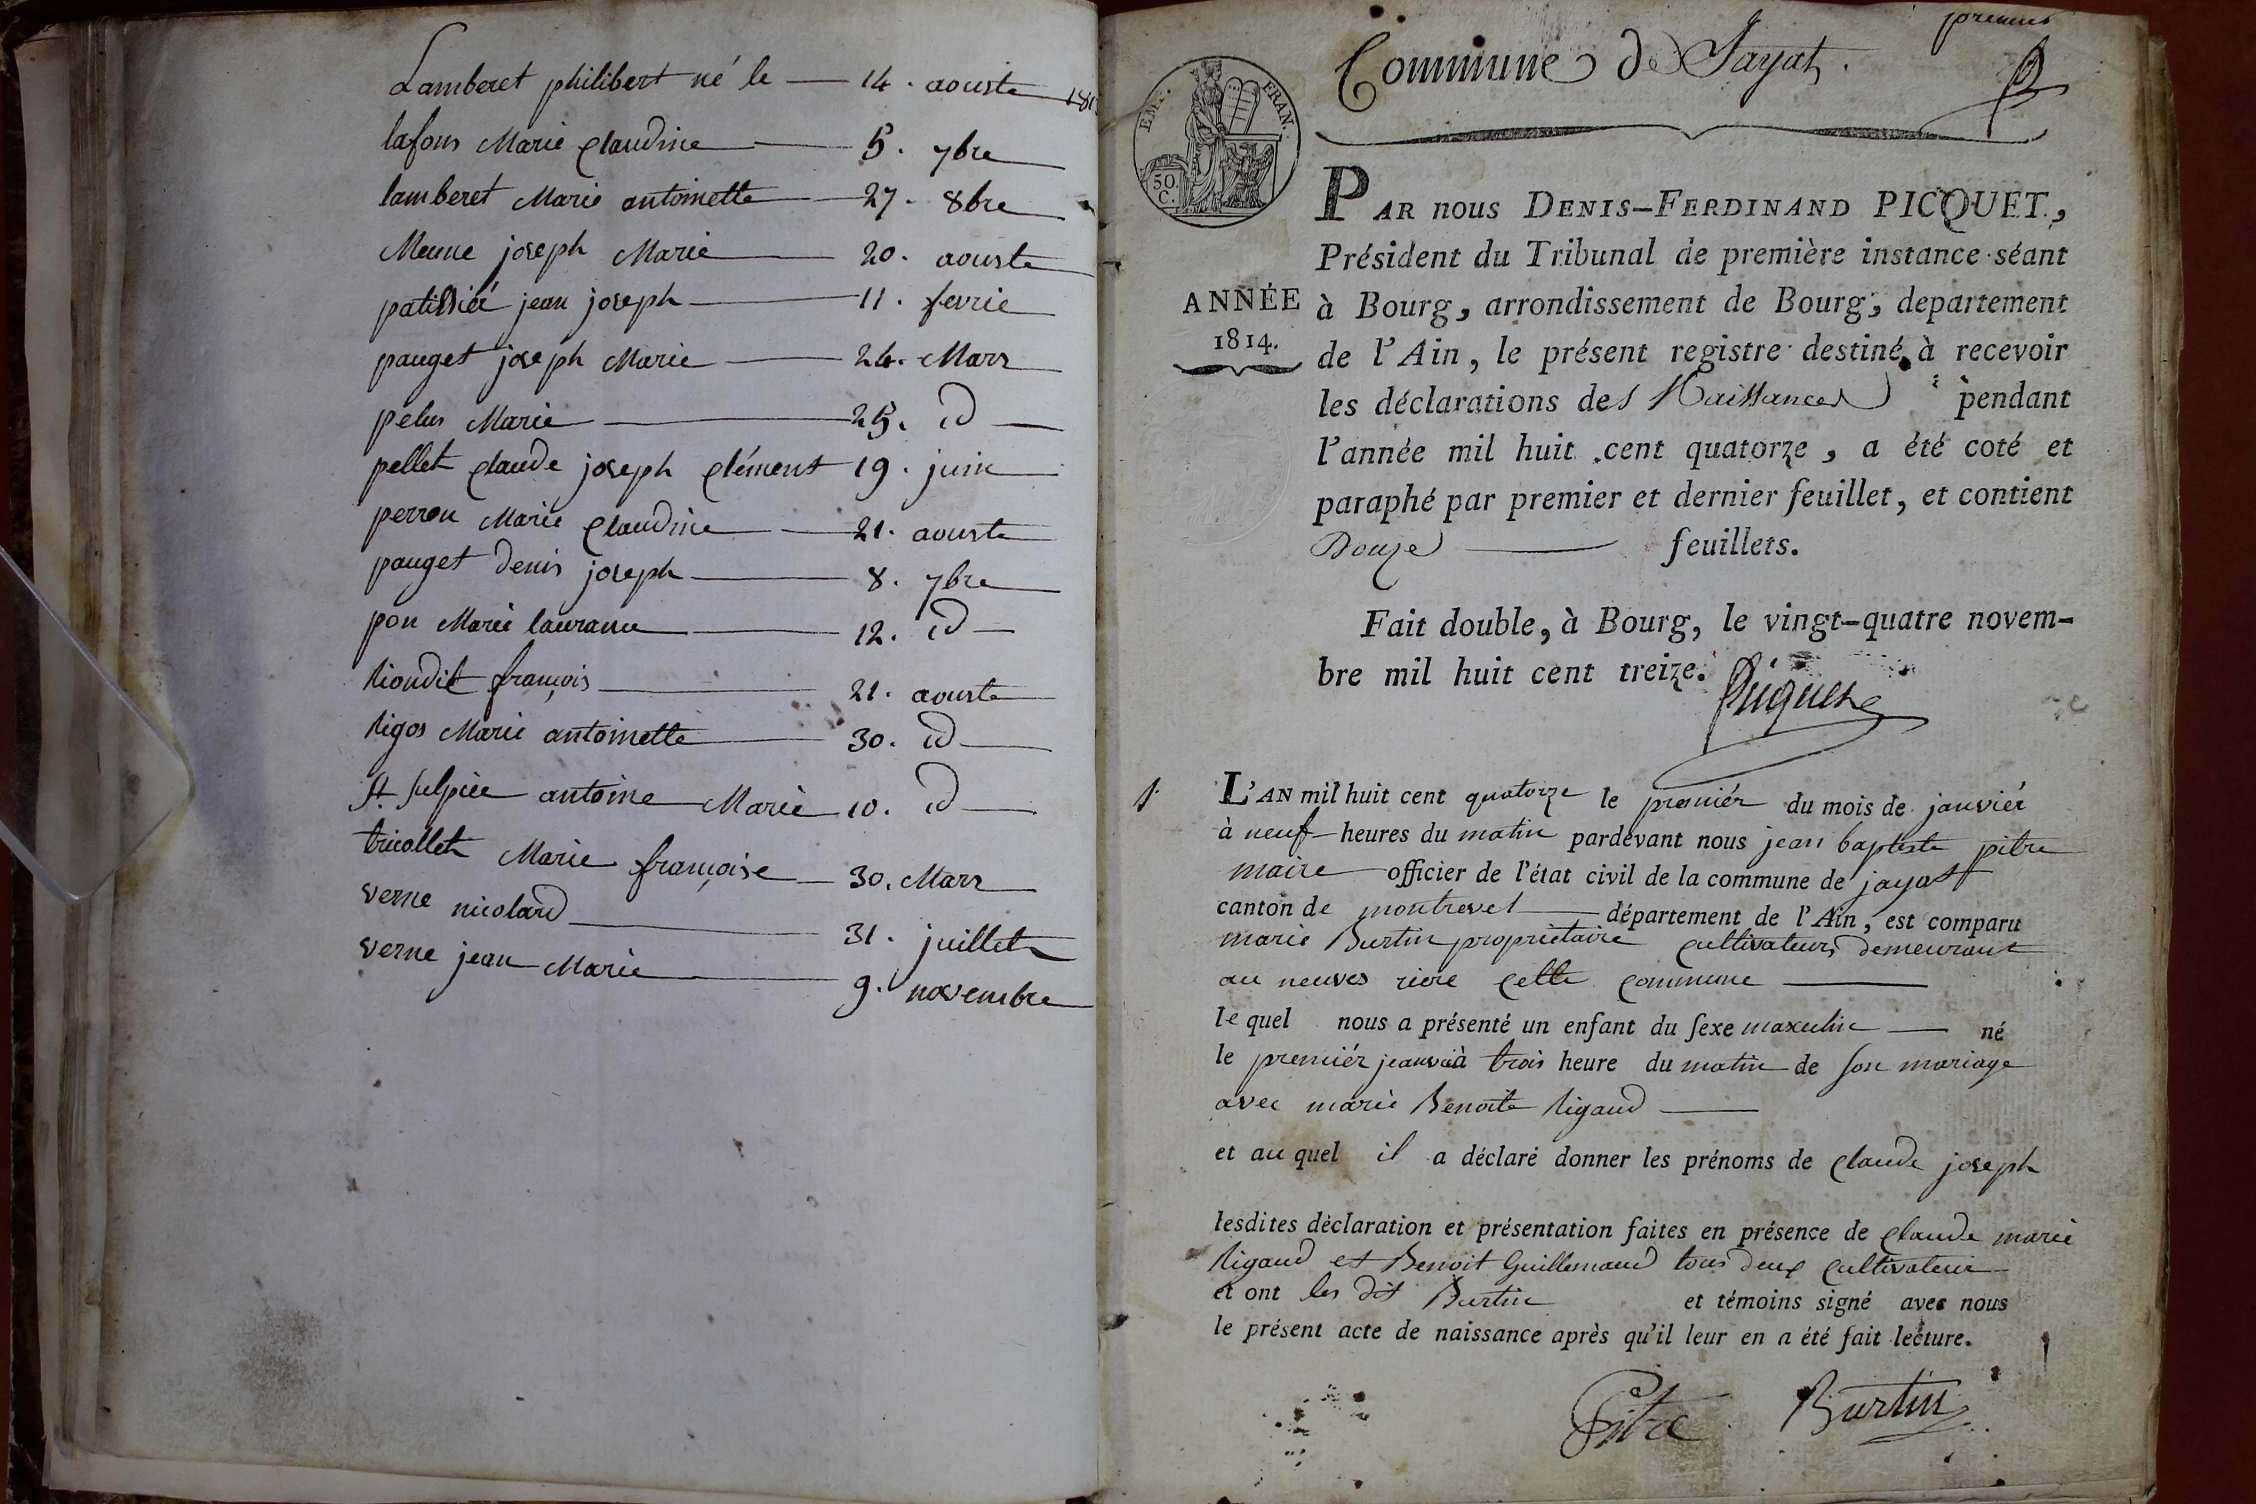 Lamberet philibert né le — 14. aouste 181
lafons Marie Claudine — 5. 7bre
lamberet Marie antoinette — 27. 8bre
Meune joseph Marie — 20. aouste
patissiér jean joseph — 11. fevrie
pauget joseph Marie — 24. Mars
pelus Marie — 25. id —
pellet Claude joseph Clément 19. juin
perron Marie Claudine — 21. aouste
pauget Denis joseph — 8. 7bre
pon Marie — 12. id —
Riondit françois — 21. aouste
Rigos Marie antoinette — 30. id —
St. Sulpice antoine Marie 10. id —
tricollet Marie françoise — 30. Mars
verne nicolard — 31. juillet
verne jean Marie — 9. novembre
premier
Commune de Jayat.
EMP. FRAN.
50. C.
ANNÉE
1814.
PAR nous DENIS-FERDINAND PICQUET,
Président du Tribunal de première instance séant
à Bourg, arrondissement de Bourg, departement
de l'Ain, le présent registre destiné à recevoir
les déclarations des Naissances pendant
l'année mil huit cent quatorze, a été coté et
paraphé par premier et dernier feuillet, et contient
Douze — feuillets.
Fait double, à Bourg, le vingt-quatre novem-
bre mil huit cent treize.
Picquet
1. L'AN mil huit cent quatorze le premiér du mois de janviér
à neuf heures du matin pardevant nous jean baptiste pitre
maire officier de l'état civil de la commune de jayat
canton de montrevel — département de l'Ain, est comparu
marie Burtin proprietaire cultivateur, demeurant
au neuves riere cette commune —
le quel nous a présenté un enfant du sexe masculin — né
le premiér à trois heure du matin de son mariage
avec marie Benoite Rigaud —
et au quel il a déclaré donner les prénoms de Claude joseph
lesdites déclaration et présentation faites en présence de Claude marie
Rigaud et Benoit Guillemaud tous deux cultivateur
et ont les dit Burtin et témoins signé avec nous
le présent acte de naissance après qu'il leur en a été fait lecture.
Pitre Burtin